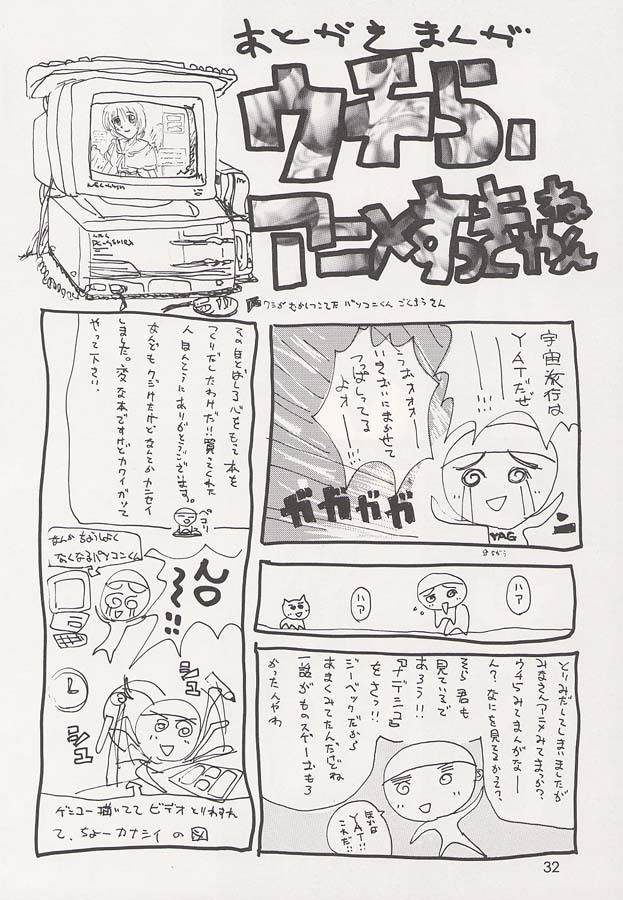 あとがきまんが
ウチら、
アニメすっきやねん
ワシが むかしつこてた パソコンくん ごくろうさん
宇宙旅行は
YATだぜ
ーーー!!
うおォォォー
いきおいにまかせて
つっぱしってる
よォーーー!!
ガガガガガ
YAG
ハア
ハア
とりみだしてしまいましたが
みなさんアニメみてまっか?
ウチらみてまんがなー
ん?なにを見てるかって?
そら 君も
見ているで
あろう!!
ナデシコ
をさっ!!
ジーベックだから
あまくみてたんだけどね
一話がものスゲーおもろ
かったんやわ
ほかは
YAT!!
これだ!!
その目とばしる心をもって本を
つくりだしたわけだ!!買ってくれた
人 ほんとうにありがとうございます。
なんども クジけたけどなんとかカンセイ
しました。変な本ですけどカワイがって
やって下さい。
ペコリ
なんか ちょうしよく
なくなるパソコンくん
シュ
シュ
ゲシコー描いてて ビデオ とりわすれ
て、ちょーカナシイ の
32